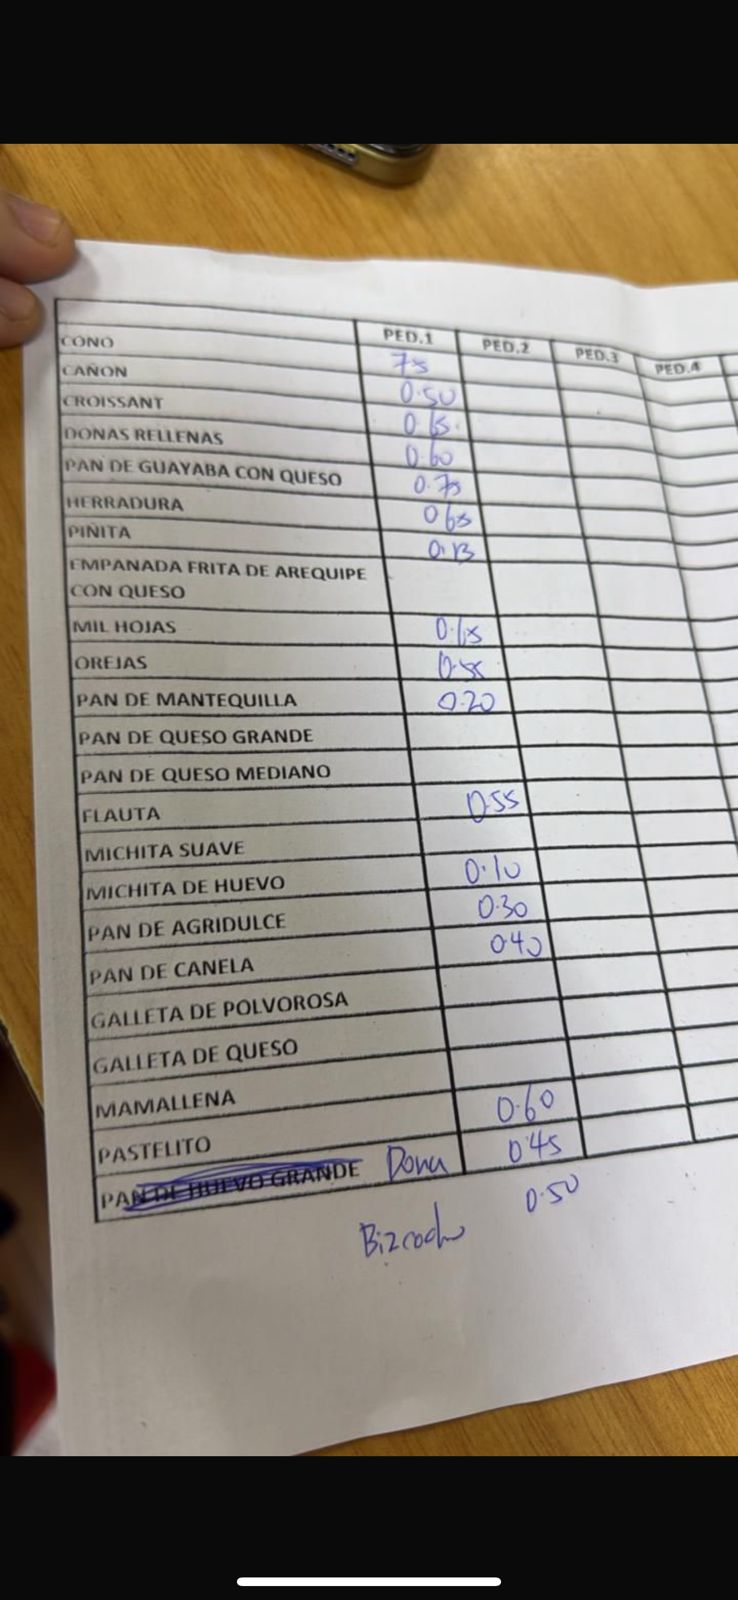 PED.1 PED.2 PED.3 PED.4
CONO 75
CAÑON 0.50
CROISSANT 0.65
DONAS RELLENAS 0.60
PAN DE GUAYABA CON QUESO 0.75
HERRADURA 0.65
PIÑITA 0.13
EMPANADA FRITA DE AREQUIPE
CON QUESO
MIL HOJAS 0.65
OREJAS 0.55
PAN DE MANTEQUILLA 0.20
PAN DE QUESO GRANDE
PAN DE QUESO MEDIANO
FLAUTA 0.55
MICHITA SUAVE
MICHITA DE HUEVO 0.10
PAN DE AGRIDULCE 0.30
PAN DE CANELA 0.40
GALLETA DE POLVOROSA
GALLETA DE QUESO
MAMALLENA
PASTELITO 0.60
PAN DE HUEVO GRANDE Dona 0.45
Bizcocho 0.50